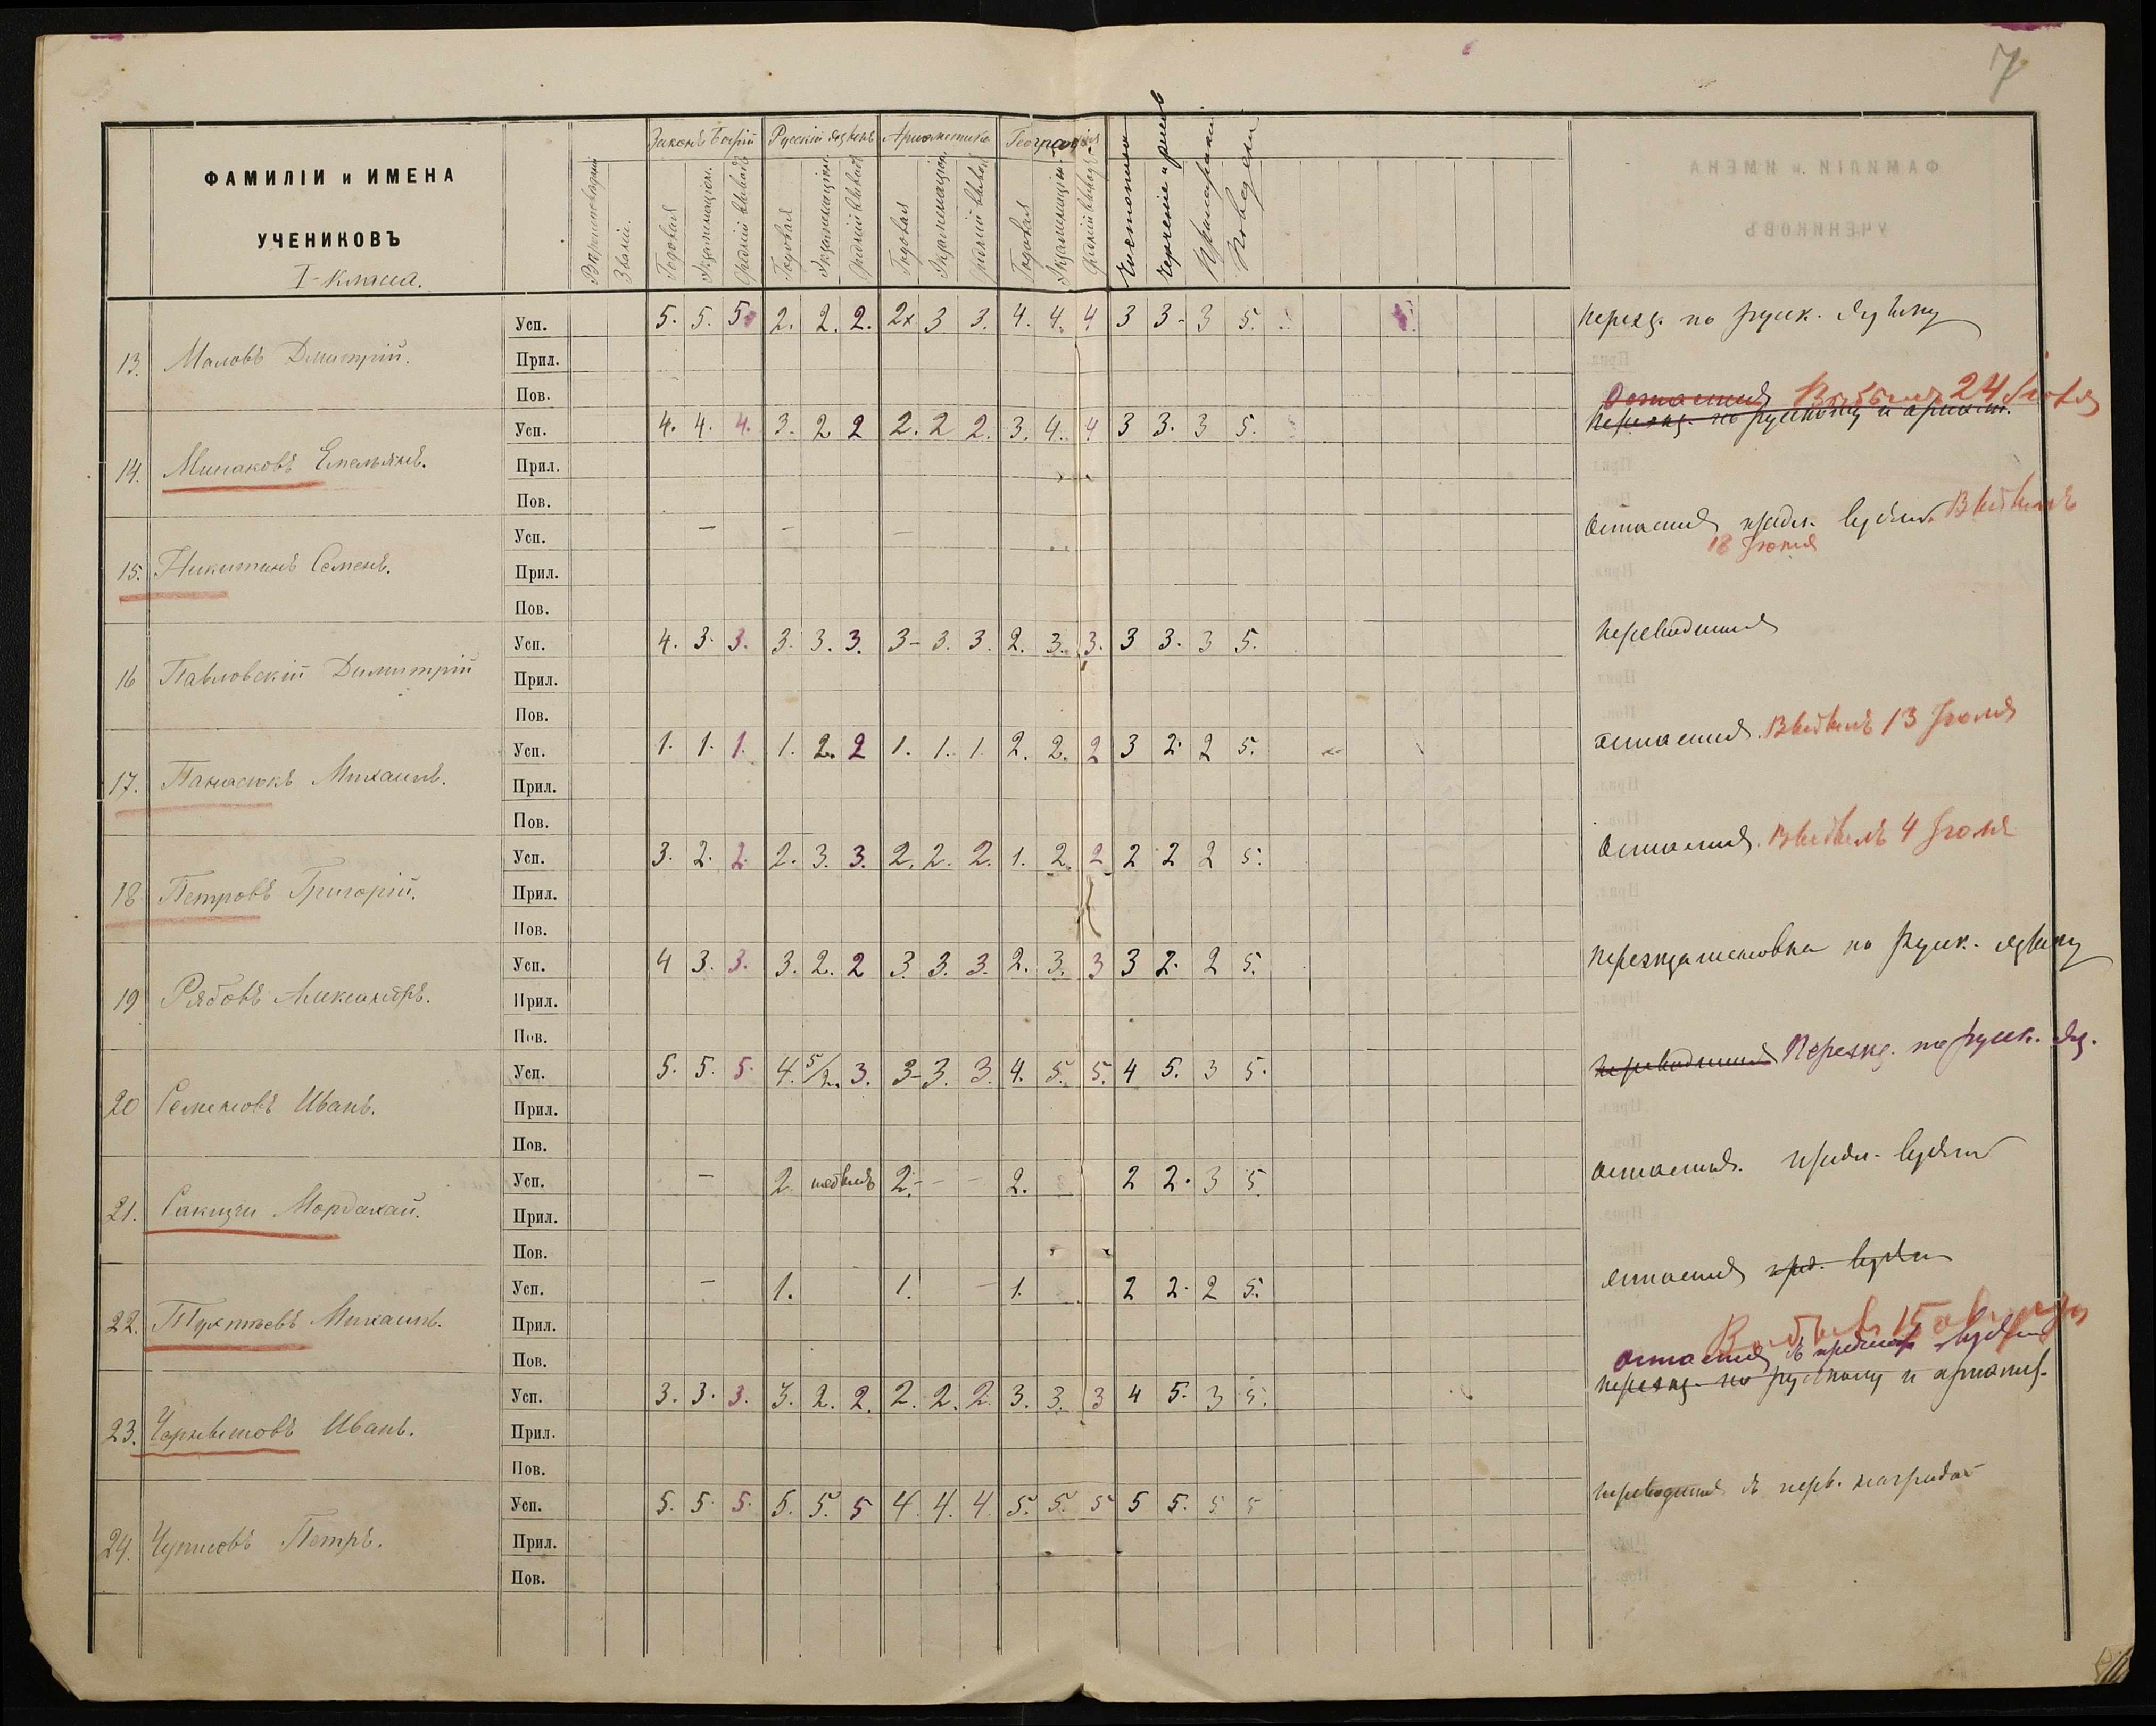 7
ФАМИЛІИ и ИМЕНА
УЧЕНИКОВЪ
I-класса.
Законъ Божій Русскій языкъ Ариѳметика Географія
Годовая Экзаменаціон. Средній выводъ Годовая Экзаменаціон. Средній выводъ Годовая Экзаменаціон. Средній выводъ Годовая Экзаменаціон. Средній выводъ Чистописаніе Черченіе и рисов Прилежаніе Поведеніе
13. Маловъ Дмитрій.
Усп. 5. 5. 5. 2. 2. 2. 2х 3 3. 4. 4. 4 3 3- 3 5. Переэкз. по русск. языку
Прил.
Пов.
Остается Выбылъ 24 Іюля
Переэкз. по русскому и ариѳм.
14. Минаковъ Емельянъ.
Усп. 4. 4. 4. 3. 2 2 2. 2 2. 3. 4. 4 3 3. 3 5.
Прил.
Пов.
15. Никитинъ Семенъ.
Усп. – – – Остается Выбылъ
18 Іюня
Прил.
Пов.
16 Павловскій Димитрій
Усп. 4. 3. 3. 3. 3. 3. 3- 3. 3. 2. 3. 3. 3 3. 3 5. Переводится
Прил.
Пов.
17. Панасюкъ Михаилъ.
Усп. 1. 1. 1. 1. 2. 2 1. 1. 1. 2. 2. 2 3 2. 2 5. Остается. Выбылъ 13 Іюля
Прил.
Пов.
18 Петровъ Григорій.
Усп. 3. 2. 2. 2. 3. 3. 2. 2. 2. 1. 2. 2 2 2 2 5. Остается. Выбылъ 4 Іюля
Прил.
Пов.
19 Рябовъ Александръ.
Усп. 4 3. 3. 3. 2. 2 3. 3. 3. 2. 3. 3 3 2. 2 5. Переэкзаменовка по русск. языку
Прил.
Пов.
20 Семеновъ Иванъ.
Усп. 5. 5. 5. 4. 5/2. 3. 3- 3. 3. 4. 5. 5. 4 5. 3 5. Переводится Переэкз. по русск. яз.
Прил.
Пов.
21. Сакизчи Мордахай.
Усп. – 2 2. - - 2. 2 2. 3 5. Остается.
Прил.
Пов.
22. Михаилъ.
Усп. – 1. 1. – 1. 2 2. 2 5. Остается
Прил.
Пов.
Выбылъ 15 августа
Остается
переэкз. по русскому и ариѳмет.
23. Иванъ.
Усп. 3. 3. 3. 3. 2. 2. 2. 2. 2. 3. 3. 3 4 5. 3 5.
Прил.
Пов.
24. Петръ.
Усп. 5. 5. 5. 5. 5. 5 4. 4. 4. 5. 5. 5 5 5. 5 5 Переводится съ перв. наградой
Прил.
Пов.